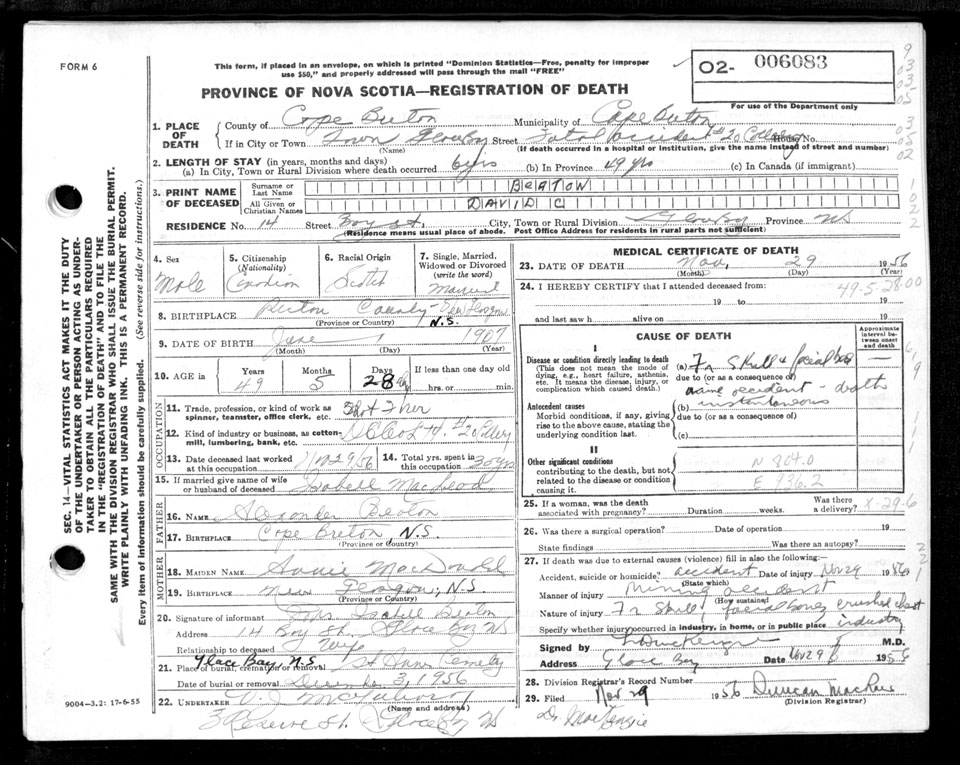 FORM 6
This form, if placed in an envelope, on which is printed "Dominion Statistics—Free, penalty for improper
use $50," and properly addressed will pass through the mail "FREE"
O2- 006083
PROVINCE OF NOVA SCOTIA—REGISTRATION OF DEATH
For use of the Department only
1. PLACE OF DEATH
County of Cape Breton Municipality of Cape Breton
If in City or Town Town Glace Bay Street Fatal accident #20 Colliery House No.
(Name) (If death occurred in a hospital or institution, give the name instead of street and number)
2. LENGTH OF STAY (in years, months and days)
(a) In City, Town or Rural Division where death occurred 6 yrs (b) In Province 49 yrs (c) In Canada (if immigrant)
3. PRINT NAME OF DECEASED
Surname or Last Name BEATON
All Given or Christian Names DAVID C
RESIDENCE No. 14 Street City, Town or Rural Division Glace Bay Province NS
(Residence means usual place of abode. Post Office Address for residents in rural parts not sufficient)
4. Sex Male
5. Citizenship (Nationality) Canadian
6. Racial Origin Scotch
7. Single, Married, Widowed or Divorced (write the word) Married
8. BIRTHPLACE Pictou County - New Glasgow N.S.
(Province or Country)
9. DATE OF BIRTH June 1 1907
(Month) (Day) (Year)
10. AGE in Years 49 Months 5 Days 28 If less than one day old hrs. or min.
OCCUPATION
11. Trade, profession, or kind of work as spinner, teamster, office clerk, etc. Shot Firer
12. Kind of industry or business, as cotton-mill, lumbering, bank, etc.
13. Date deceased last worked at this occupation Nov 29/56
14. Total yrs. spent in this occupation 30 yrs
15. If married give name of wife or husband of deceased Isabell MacLeod
FATHER
16. NAME Alexander Beaton
17. BIRTHPLACE Cape Breton, N.S.
(Province or Country)
MOTHER
18. MAIDEN NAME Annie MacDonald
19. BIRTHPLACE New Glasgow, N.S
(Province or Country)
20. Signature of informant Mrs Isabell Beaton
Address 14 St. Glace Bay NS
Relationship to deceased Wife
21. Place of burial, cremation or removal Glace Bay, N.S St Anns Cemetery
Date of burial or removal December 3, 1956
22. UNDERTAKER
(Name and address)
3 Reserve St. Glace Bay NS
MEDICAL CERTIFICATE OF DEATH
23. DATE OF DEATH Nov. 29 1956
(Month) (Day) (Year)
24. I HEREBY CERTIFY that I attended deceased from:
49-5-28-00
19 to 19
and last saw h alive on 19
CAUSE OF DEATH
Approximate interval between onset and death
I
Disease or condition directly leading to death
(This does not mean the mode of dying, e.g., heart failure, asthenia, etc. It means the disease, injury, or complication which caused death.)
(a) Fr Skull & facial bones
due to (or as a consequence of)
mine accident - death
instantaneous
Antecedent causes
Morbid conditions, if any, giving rise to the above cause, stating the underlying condition last.
(b)
due to (or as a consequence of)
(c)
II
Other significant conditions
contributing to the death, but not related to the disease or condition causing it.
N 804.0
E 936.2
25. If a woman, was the death associated with pregnancy? Duration weeks. Was there a delivery?
X-29-6
26. Was there a surgical operation? Date of operation 19
State findings Was there an autopsy?
27. If death was due to external causes (violence) fill in also the following:
Accident, suicide or homicide? accident Date of injury Nov 29 1956
(State which)
Manner of injury Mining accident
(How sustained)
Nature of injury Fr Skull, facial bones, crushed chest
Specify whether injury occurred in industry, in home, or in public place industry
Signed by M.D.
Address Glace Bay Date Nov 29 1956
28. Division Registrar's Record Number
29. Filed Nov 29 1956 Duncan MacRae
(Division Registrar)
Dr MacKenzie
SEC. 14—VITAL STATISTICS ACT MAKES IT THE DUTY
OF THE UNDERTAKER OR PERSON ACTING AS UNDER-
TAKER TO OBTAIN ALL THE PARTICULARS REQUIRED
IN THE "REGISTRATION OF DEATH" AND TO FILE THE
SAME WITH THE DIVISION REGISTRAR WHO SHALL ISSUE THE BURIAL PERMIT.
WRITE PLAINLY WITH UNFADING INK. THIS IS A PERMANENT RECORD.
Every item of information should be carefully supplied. (See reverse side for instructions.)
9004-3.2: 17-6-55